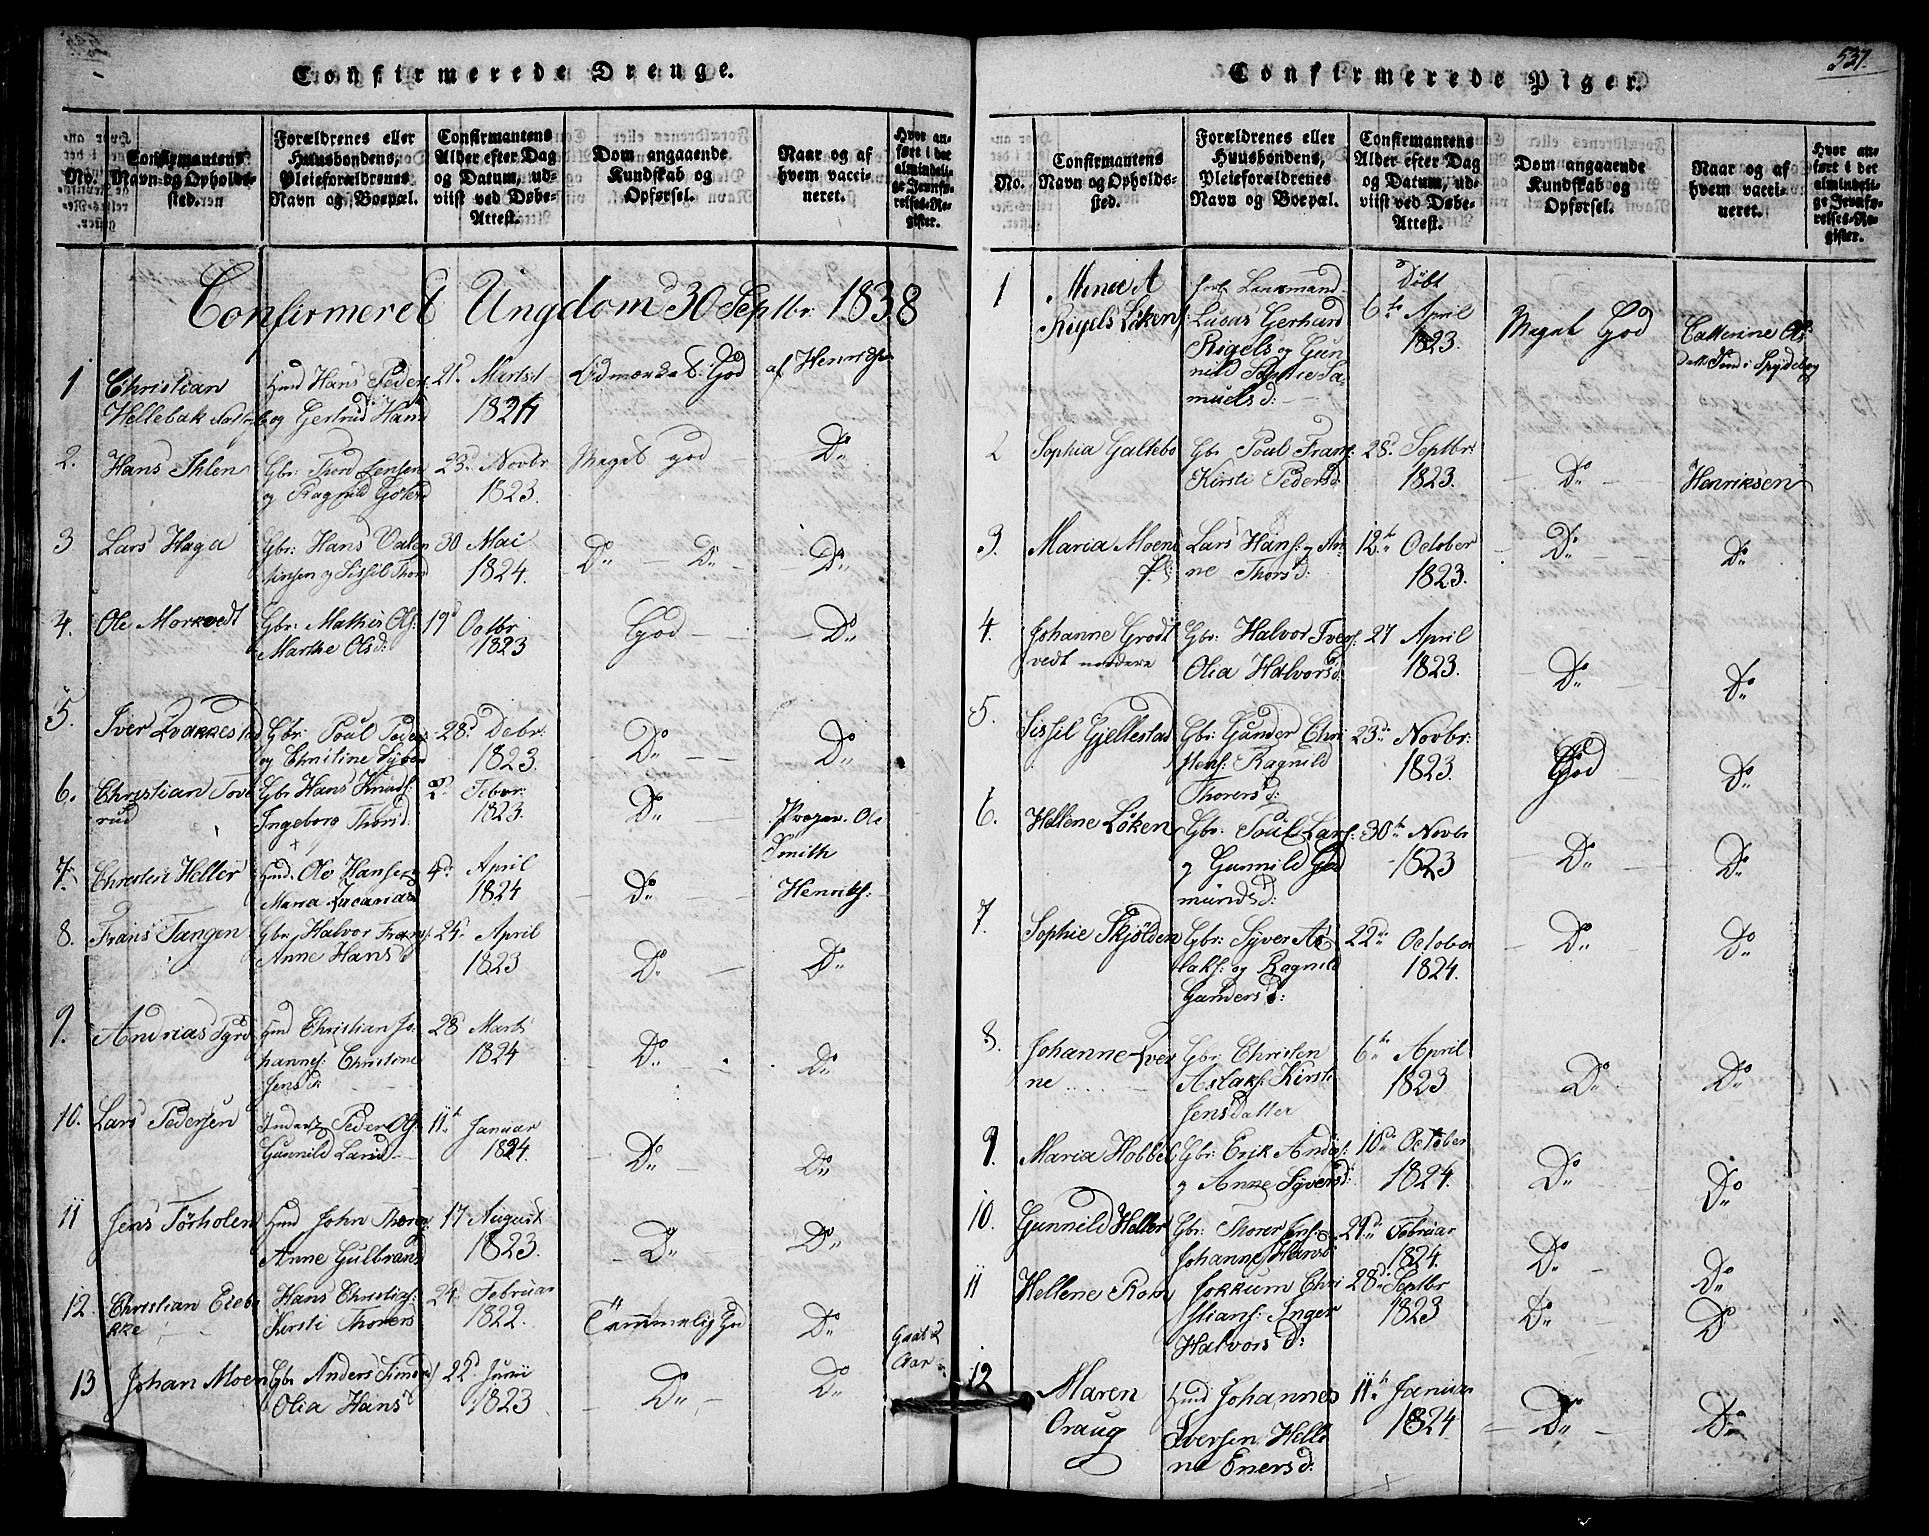 Confirmerede Drenge.
No.
Confirmantens
Navn og Opholds-
sted.
Forældrenes eller
Huusbondens,
Pleieforældrenes
Navn og Boepæl.
Confirmantens
Alder efter Dag
og Datum, ud-
viist ved Døbe-
Attest.
Dom angaaende
Kundskab og
Opførsel.
Naar og af
hvem vacci-
neret.
Hvor an-
ført i det
almindeli-
ge Jevnfø-
relses-Re-
gister.
Confirmeret Ungdom 30 Septbr: 1838
1
Christian
Hellebæk
Hans Peders
og Gertrud Hans
21d Martsii
1824
Udmærket God
af Henriksen
2.
Hans Ihlen
Gbr: Thord Jensen
og Ragnild
23d Novbr
1823.
Meget god
Do
3
Lars Haga
Gbr: Hans Valen
tinsen og Sissil Thord
30 Mai
1824.
Do - Do -
Do
4.
Ole Morkvedt
Gbr: Mathis Ols:
Marthe Olsd:
19d Octbr
1823
God - -
- Do
5.
Iver
Gbr: Poul Peders
og Christine
28d Debr:
1823.
Do - -
Do
6.
Christian Tove
rud
Gbr Hans Knuds:
Ingeborg Thorsd:
2d Febvr:
1823.
Do -
Ole
Smith
7.
Christen Heller
Ole Hansen
Maria Zacariasd
4d April
1824
- Do -
Henriks:
8.
Frans Tangen
Gbr. Halvor Frans:
Anne Hansd
24. April
1823
Do -
- Do
9.
Andrias
Christian Jo
hannes: Christine
Jensd:
28 Marts
1824
- Do -
Do
10.
Lars Pedersen
Peder Ols:
Gunnild Larsd
11te Januar
1824.
Do -
Do
11
Jens Torholen
John
Anne Gulbrans
17 August
1823.
- Do
Do
12.
Christian
kke
Hans Christians:
Kirsti Thorers
24. Februar
1822.
Temmelig God
Do
Gaat 2
Aar
13
Johan Moen
Gbr Anders Simons
Olia Hansd
22d Junii
1823
Do -
Do
537.
Confirmerede Piger.
No.
Confirmantens
Navn og Opholds-
sted.
Forældrenes eller
Huusbondens,
Pleieforældrenes
Navn og Boepæl.
Confirmantens
Alder efter Dag
og Datum, ud-
viist ved Døbe-
Attest.
Dom angaaende
Kundskab og
Opførsel.
Naar og af
hvem vacci-
neret.
Hvor an-
ført i det
almindeli-
ge Jevnfø-
relses-Re-
gister.
1
A
Rigels Löken
Lensmand
Lucas Gerhard
Rigels og Gun
nild Sophie Sa
muelsd: -
Döbt
6te April
1823.
Meget God
Catterine Ols
i Spydeberg
2
Sophia Galtebo
Gbr Poul Frans:
Kirsti Pedersd:
28d Septbr:
1823.
- Do -
Henriksen
3.
Maria Moens
P:
Lars Hans: og An
ne Thorsd:
12te October
1823.
- Do -
Do
4.
Johanne Grodt
vedt nordere
Gbr: Halvor
Olia Halvorsd:
27 April
1823.
Do -
Do
5.
Sissil Gjellestad
Gbr: Gunder Chri
stens: Ragnild
Thorersd:
23de Novbr:
1823.
God
Do
6.
Hellene Löken
Gbr: Poul Lars:
og Gunnild God
mundsd:
30te Novbr
1823
- Do -
Do
7.
Sophie Skjölden
Gbr: Syver As
laks: og Ragnild
Gundersd:
22de October
1824.
- Do -
Do
8.
Johanne
ne
Gbr: Christen
Aslaks: Kirsti
Jensdatter
6te April
1823
Do -
Do
9.
Maria Hobbel
Gbr: Erik Anders:
og Anne Syversd:
10de October
1824.
Do -
Do
10.
Gunnild Heller
Gbr: Thorer
Johanne Hansd
29de Februar
1824.
Do -
Do
11
Hellene Rom
Jokkum Chri
stians: Inger
Halvorsd:
28de Septbr
1823
Do -
Do
12
Maren
Oraug
Johannes
Iversen, Helle
ne Enersd:
11te Januar
1824
- Do -
Do